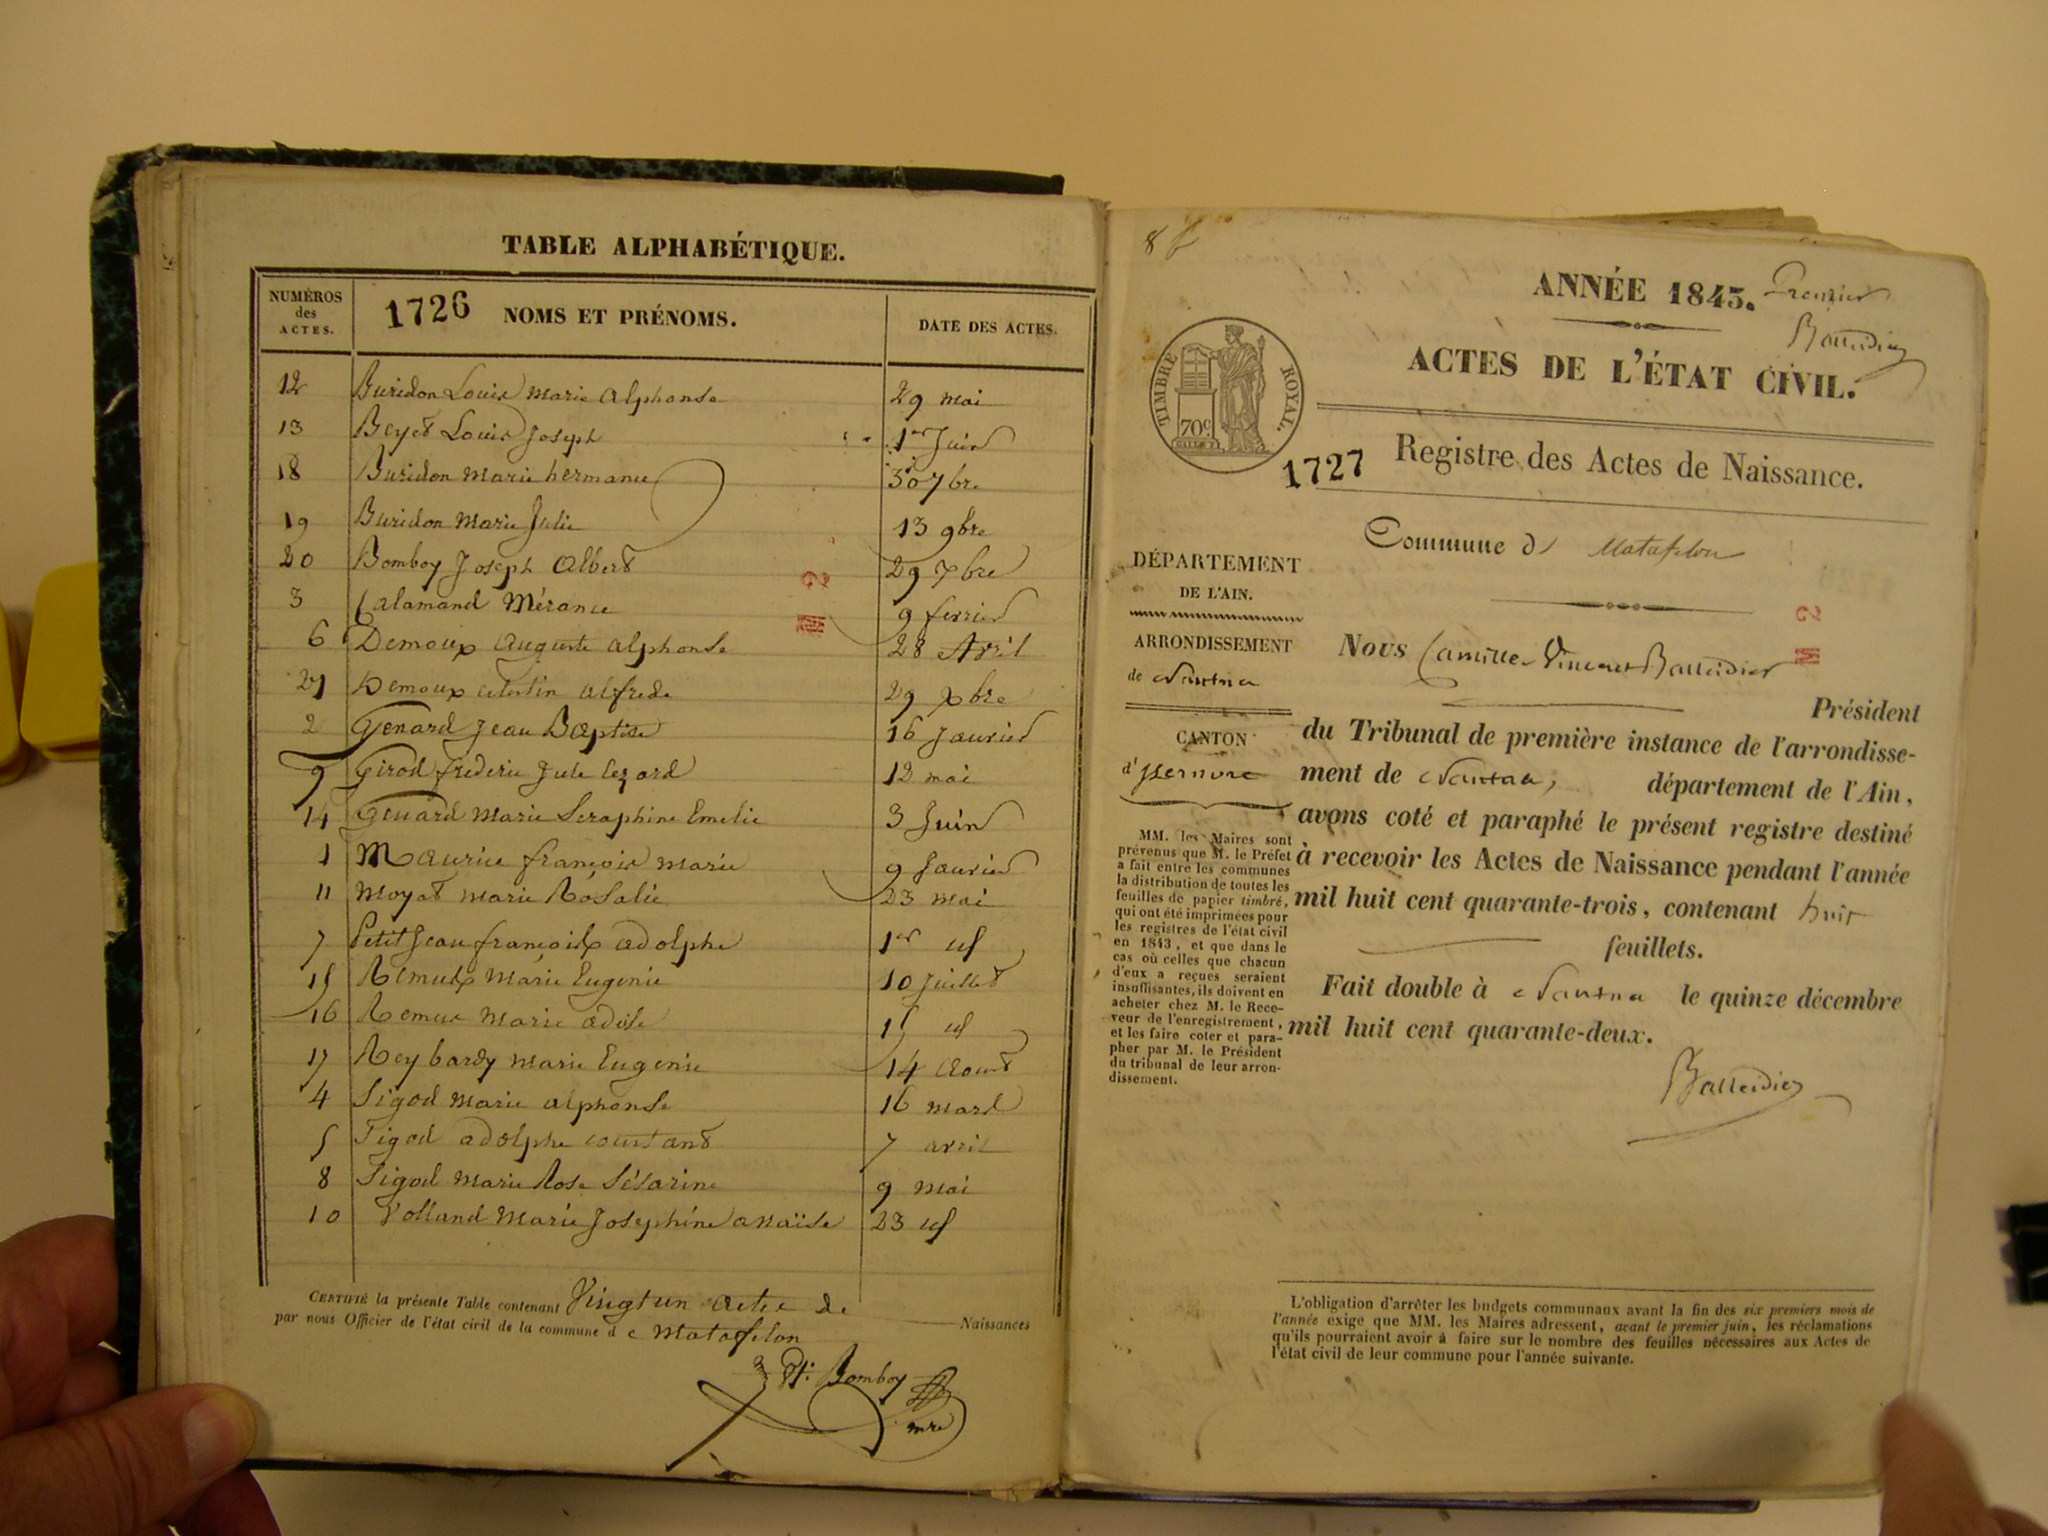 TABLE ALPHABÉTIQUE.
NUMÉROS des ACTES. 1726 NOMS ET PRÉNOMS. DATE DES ACTES.
12 Buridon Louis Marie Alphonse 29 mai
13 Beyet Louis Joseph 1er Juin
18 Buridon Marie hermance 30 7bre
19 Buridon Marie Julie 13 9bre
20 Bomboy Joseph Albert 29 Xbre
3 Calamand Mérance 9 fevrier
6 Demoux auguste alphonse 28 Avril
21 Demoux celestin alfrede 29 Xbre
2 Genard Jean Baptiste 16 Janvier
9 Girod frederic Jule Cezard 12 mai
14 Genard Marie Seraphine Emelie 3 Juin
1 Maurice françois marie 9 Janvier
11 Moyat marie Rosalie 23 mai
7 Petit Jean françois adolphe 1er
15 Remux Marie Eugenie 10 Juillet
16 Remux Marie adele 15
17 Reybardy Marie Eugenie 14 Aout
4 Sigod Marie alphonse 16 mars
5 Sigod adolphe constant 7 avril
8 Sigod Marie Rose Sésarine 9 mai
10 Volland Marie Josephine anaïse 23
CERTIFIÉ la présente Table contenant Vingt un actes de Naissances
par nous Officier de l'état civil de la commune de Matafelon
Bomboy
mre
ANNÉE 1843. Premier
Balleidier
ACTES DE L'ÉTAT CIVIL.
TIMBRE ROYAL.
70c
1727 Registre des Actes de Naissance.
Commune de Matafelon
DÉPARTEMENT
DE L'AIN.
ARRONDISSEMENT
de Nantua
CANTON
d'Izernore
MM. les Maires sont
prévenus que M. le Préfet
a fait entre les communes
la distribution de toutes les
feuilles de papier timbré,
qui ont été imprimées pour
les registres de l'état civil
en 1843, et que dans le
cas où celles que chacun
d'eux a reçues seraient
insuffisantes, ils doivent en
acheter chez M. le Rece-
veur de l'enregistrement,
et les faire coter et para-
pher par M. le Président
du tribunal de leur arron-
dissement.
Nous Camille Vincent Balleidier
Président
du Tribunal de première instance de l'arrondisse-
ment de Nantua, département de l'Ain,
avons coté et paraphé le présent registre destiné
à recevoir les Actes de Naissance pendant l'année
mil huit cent quarante-trois, contenant huit
feuillets.
Fait double à Nantua le quinze décembre
mil huit cent quarante-deux.
Balleidier
L'obligation d'arrêter les budgets communaux avant la fin des six premiers mois de
l'année exige que MM. les Maires adressent, avant le premier juin, les réclamations
qu'ils pourraient avoir à faire sur le nombre des feuilles nécessaires aux Actes de
l'état civil de leur commune pour l'année suivante.